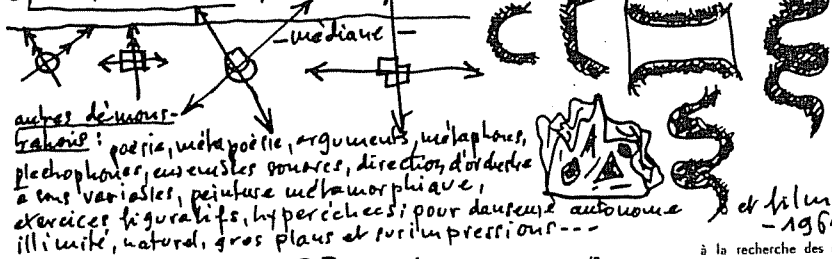 - médiane -
autres démons-
trations : poésie, métapoésie, argumeurs, métaphones,
plectophones, ensembles sonores, direction d'orchestre
à sons variables, peinture métamorphique,
exercices figuratifs, hyperéchecs, pour danseur autonome
illimité, naturel, gros plans et surimpressions---
et film
-196
à la recherche des